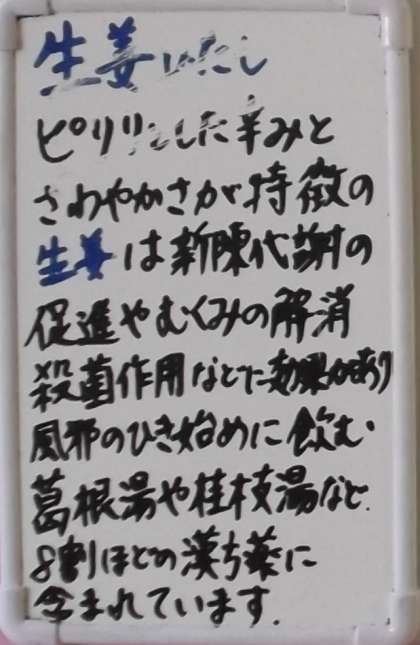 生姜いたし
ピリリとした辛みと
さわやかさが特徴の
生姜は新陳代謝の
促進やむくみの解消
殺菌作用などに効果があり
風邪のひき始めに飲む
葛根湯や桂枝湯など
8割ほどの漢ち薬に
含まれています.